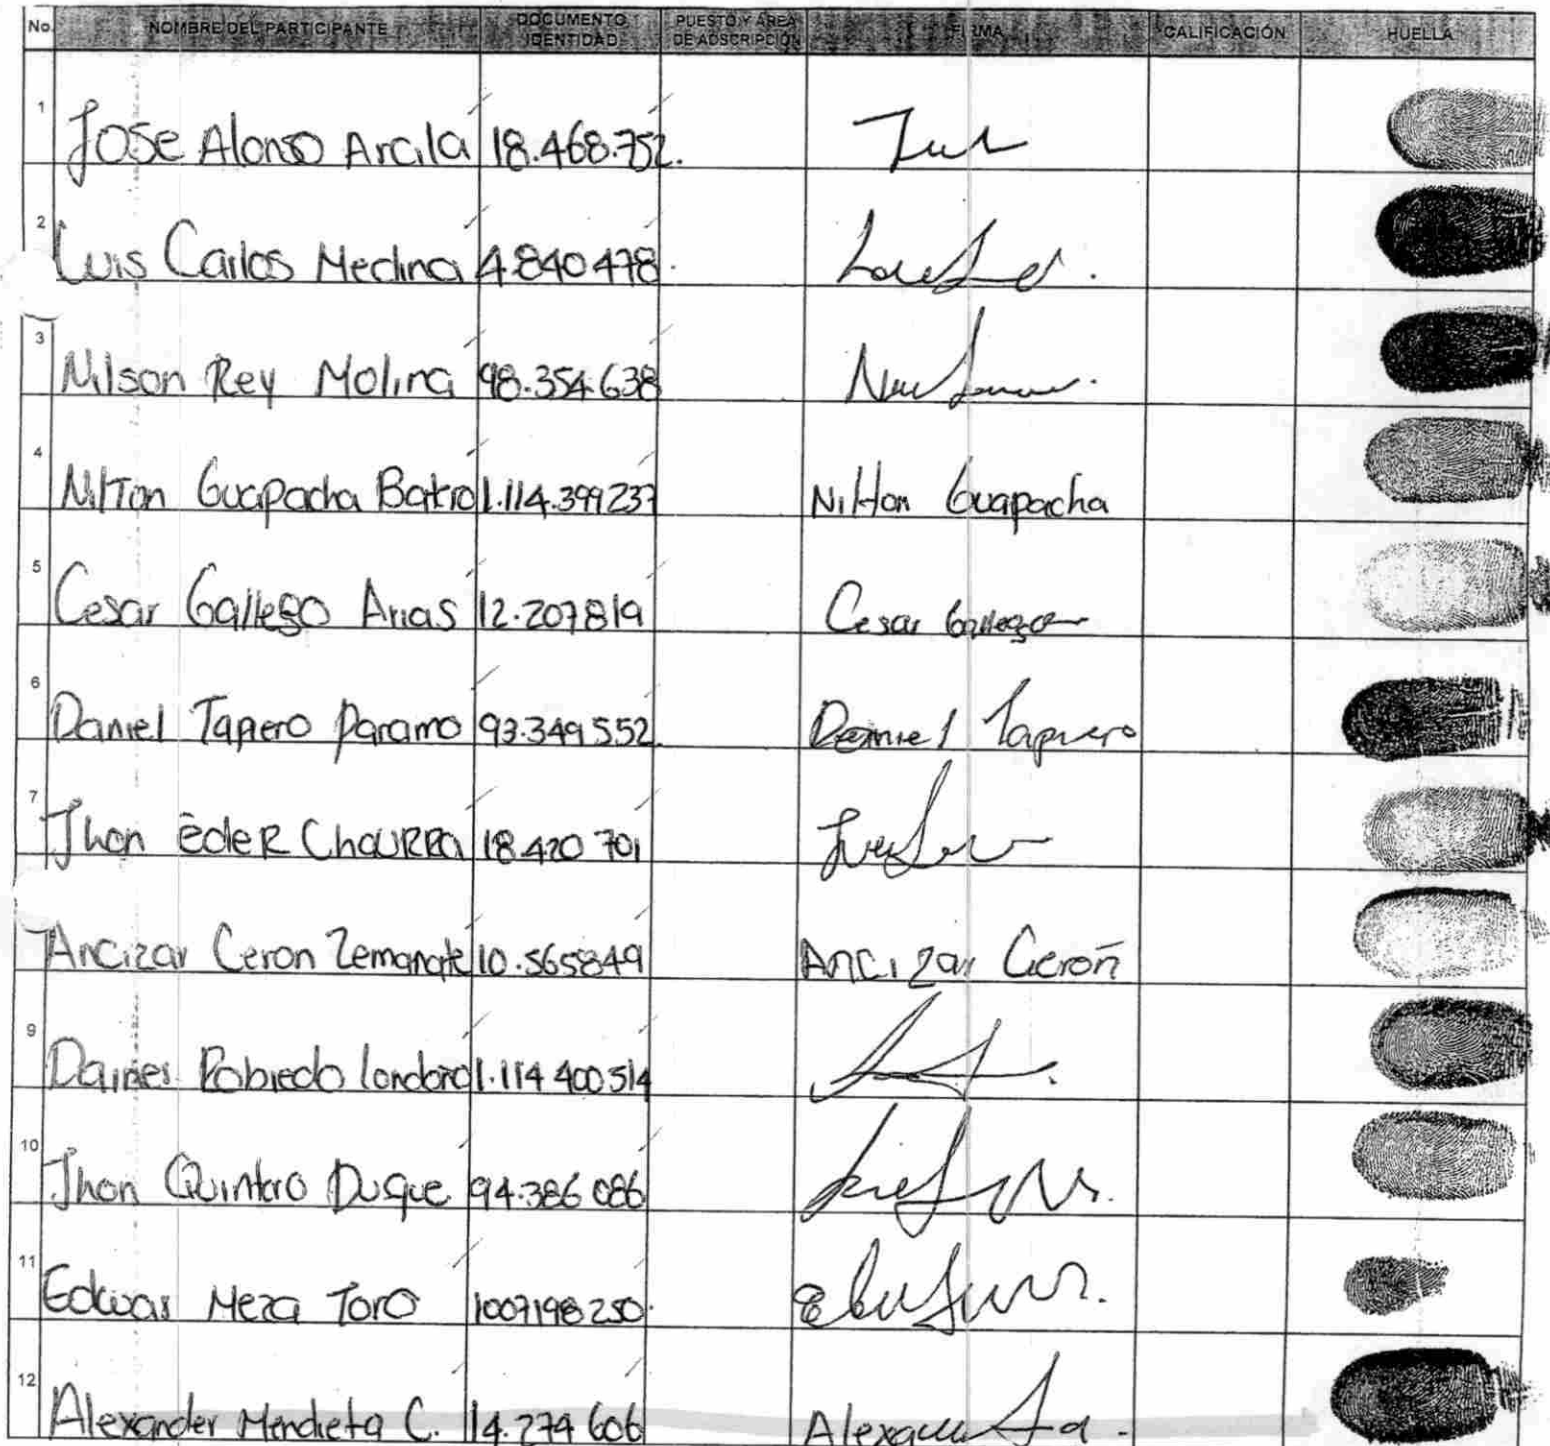 No. NOMBRE DEL PARTICIPANTE DOCUMENTO IDENTIDAD PUESTO Y AREA DE ADSCRIPCIÓN FIRMA CALIFICACIÓN HUELLA
1 Jose Alonso Arcila 18.468.752.
2 Luis Carlos Medina 4.840478.
3 Nilson Rey Molina 98.354.638
4 Nilton Guapacha Batero 1.114.399237 Nilton Guapacha
5 Cesar Gallego Arias 12.207819 Cesar Gallego
6 Daniel Tapero Paramo 93.349552 Daniel Tapiero
7 Jhon EdeR ChauRRa 18.420 701
Ancizar Ceron Zemanate 10.565849 Ancizar Ceron
9 Robledo londoño 1.114 400514
10 Jhon Quintero Duque 94.386 086
11 Edwas Meza Toro 1007198250.
12 Alexander Mendieta C. 14.274 606